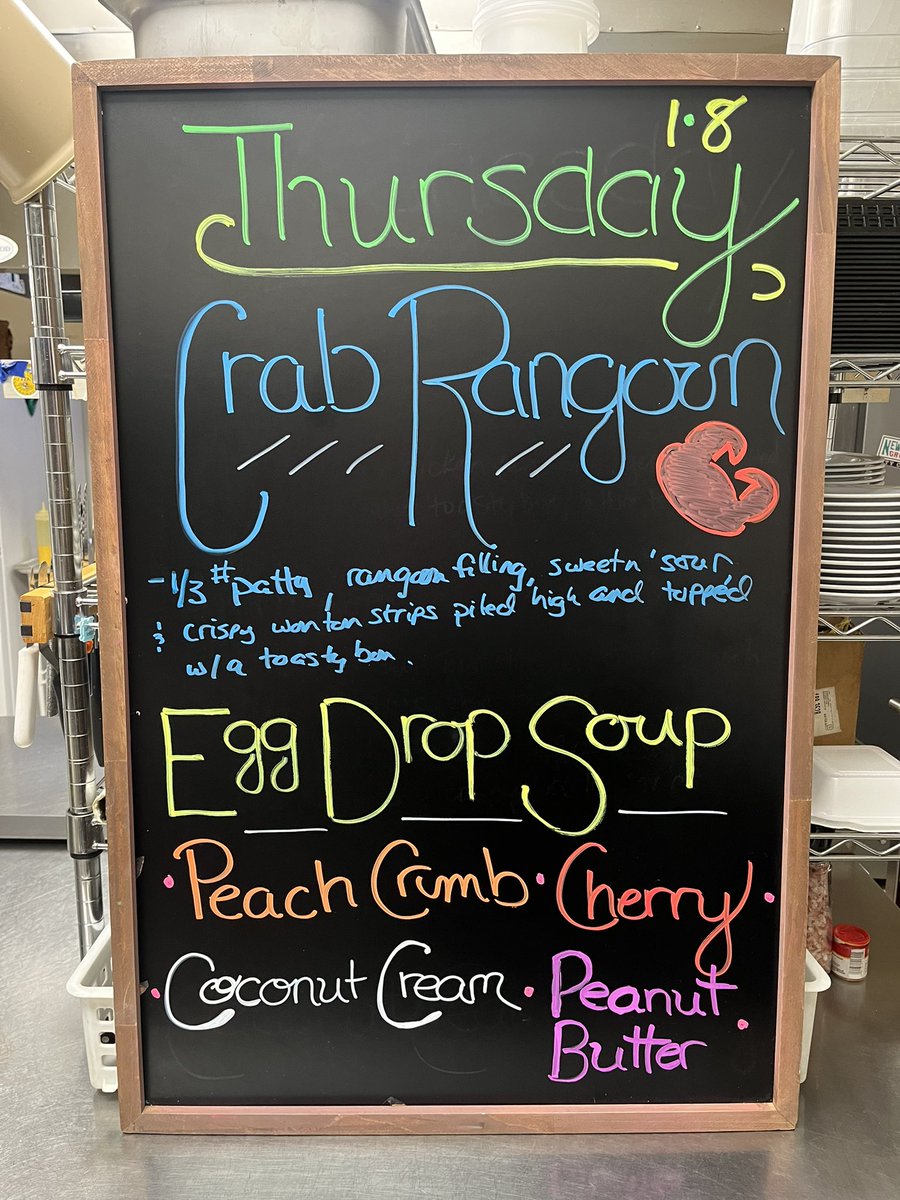 1·8
Thursday
Crab Rangoon
- 1/3 # patty, rangoon filling, sweet n' sour
& crispy wonton strips piled high and topped
w/a toasty bun.
Egg Drop Soup
· Peach Crumb · Cherry ·
· Coconut Cream · Peanut ·
Butter